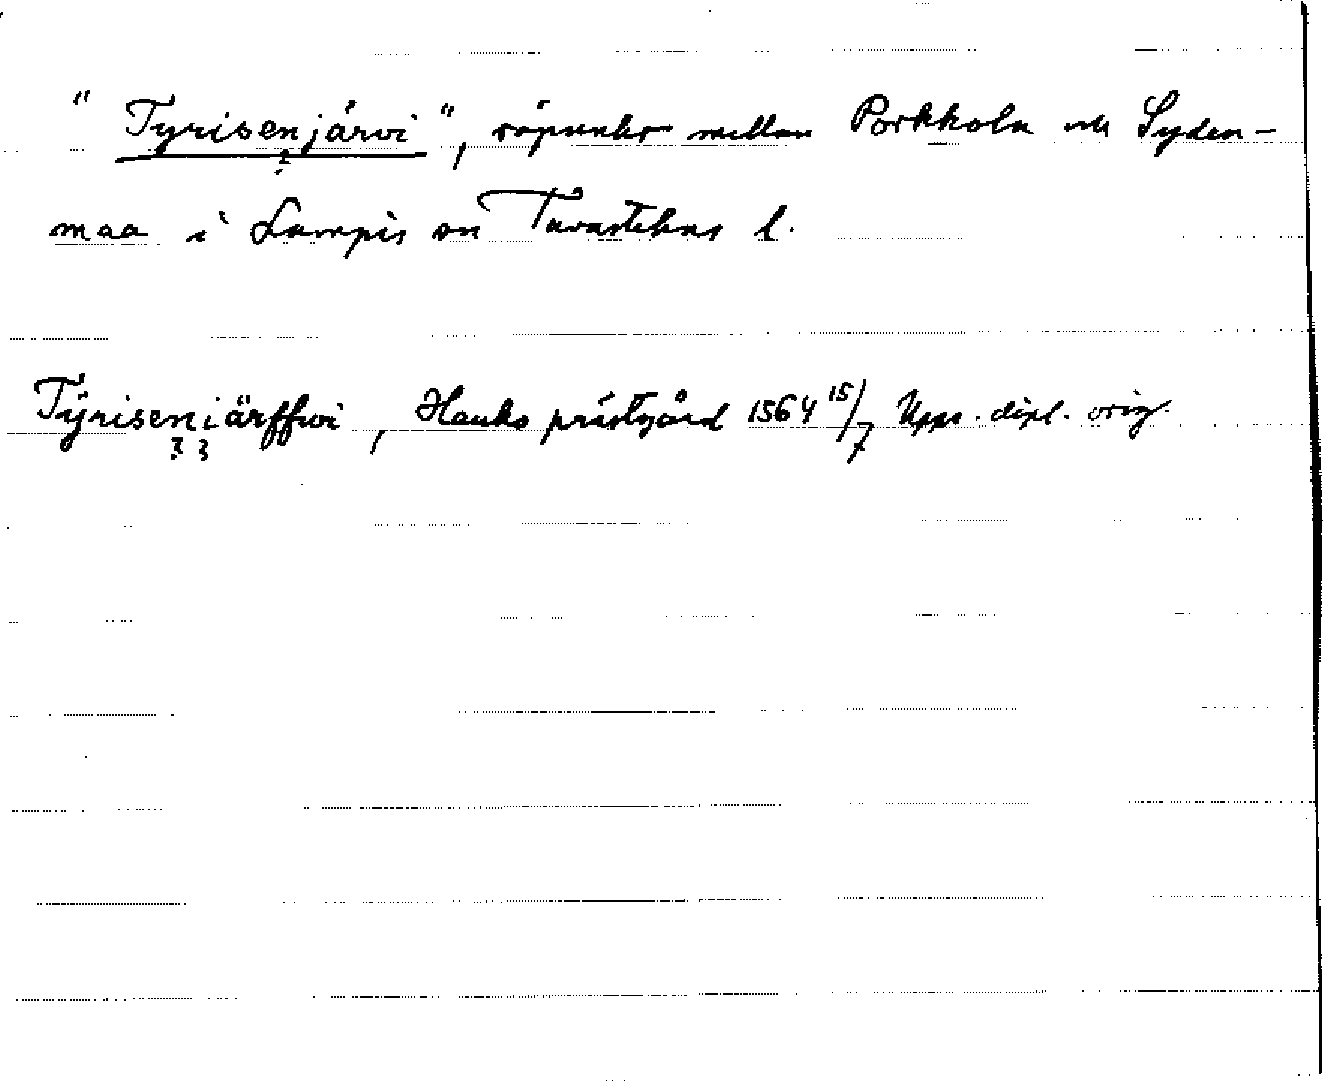 "Tyrisenjärvi", råpunkt mellan Porkkola och Syden-
?
maa i Lampis sn Tavastehus l.
Tÿriseniärffwi, Hauho prästgård 1564 15/7 Upps. dipl. orig.